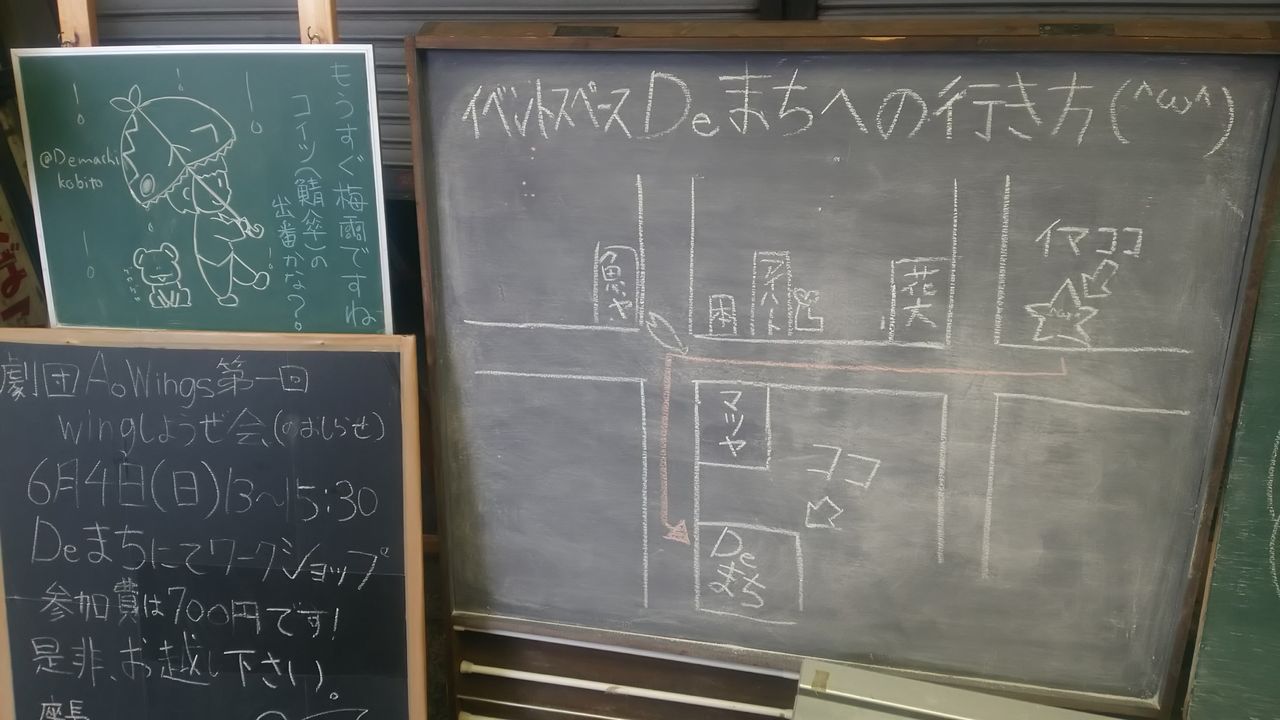 もうすぐ梅雨ですね
コイツ(鯖傘)の
出番かな?。
@Demachi
kobito
劇団A。Wings第一回
wingしようぜ会(のおしらせ)
6月4日(日)13~15:30
Deまちにてワークショップ
参加費は700円です!
是非、お越し下さい。
座長
イベントスペースDeまちへの行き方(^ω^)
イマココ
魚ヤ
アパート
花大
マツヤ
ココ
Deまち